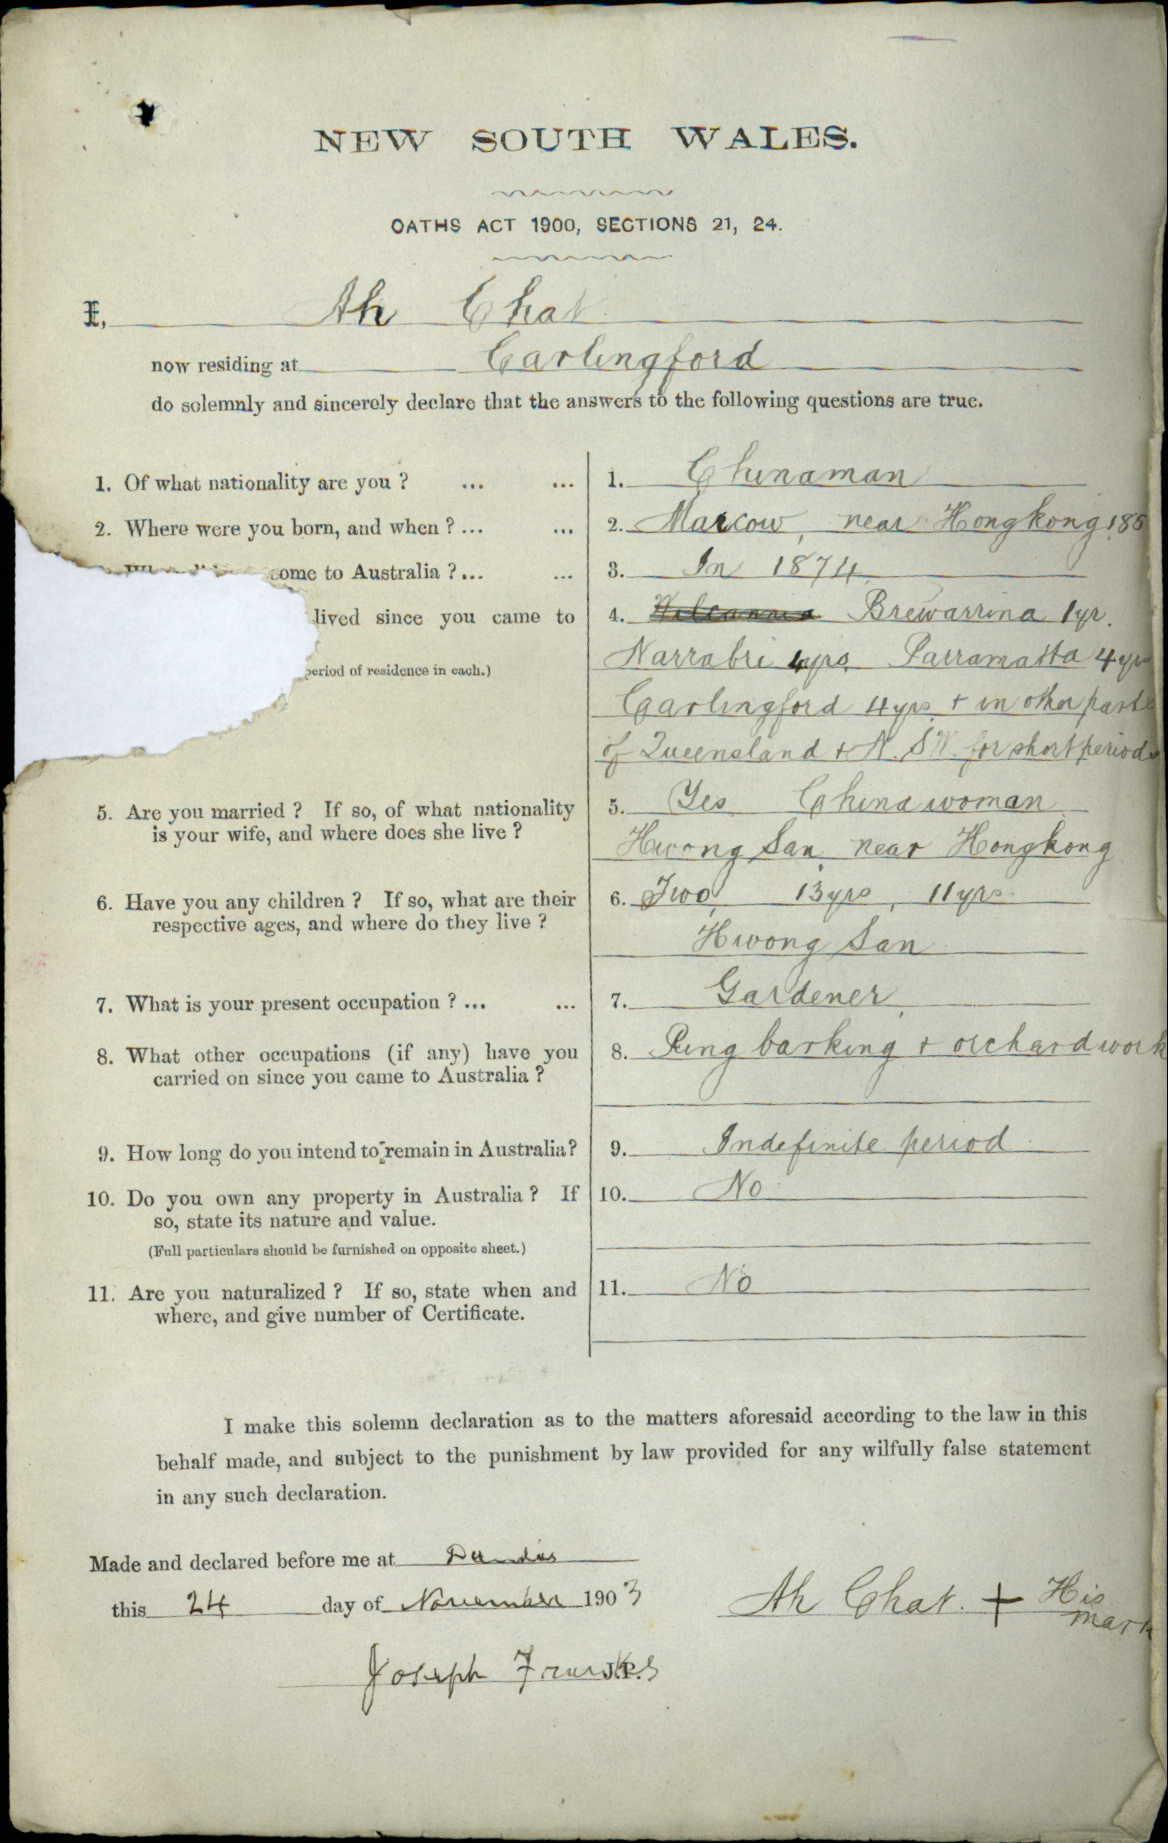 NEW SOUTH WALES.
OATHS ACT 1900, SECTIONS 21, 24.
I, Ah Chat
now residing at Carlingford
do solemnly and sincerely declare that the answers to the following questions are true.
1. Of what nationality are you ? ... ... 1. Chinaman
2. Where were you born, and when ? ... ... 2. Marcow, near Hongkong 185
ome to Australia ? ... ... 3. In 1874
lived since you came to 4. Brewarrina 1yr.
Narrabri 4yrs. Parramatta 4 yrs
period of residence in each.)
Carlingford 4yrs + in other parts
of Queensland + N. S W. for short periods
5. Are you married ? If so, of what nationality 5. Yes China woman
is your wife, and where does she live ? Hwong San, near Hongkong
6. Have you any children ? If so, what are their 6. Two, 13yrs, 11yrs.
respective ages, and where do they live ? Hwong San
7. What is your present occupation ? ... ... 7. Gardener,
8. What other occupations (if any) have you 8. Ring barking + orchard work
carried on since you came to Australia ?
9. How long do you intend to remain in Australia? 9. Indefinite period
10. Do you own any property in Australia ? If 10. No
so, state its nature and value.
(Full particulars should be furnished on opposite sheet.)
11. Are you naturalized ? If so, state when and 11. No
where, and give number of Certificate.
I make this solemn declaration as to the matters aforesaid according to the law in this
behalf made, and subject to the punishment by law provided for any wilfully false statement
in any such declaration.
Made and declared before me at Dundas
this 24 day of November 1903
Ah Chat. + His
mark
Joseph J.P.